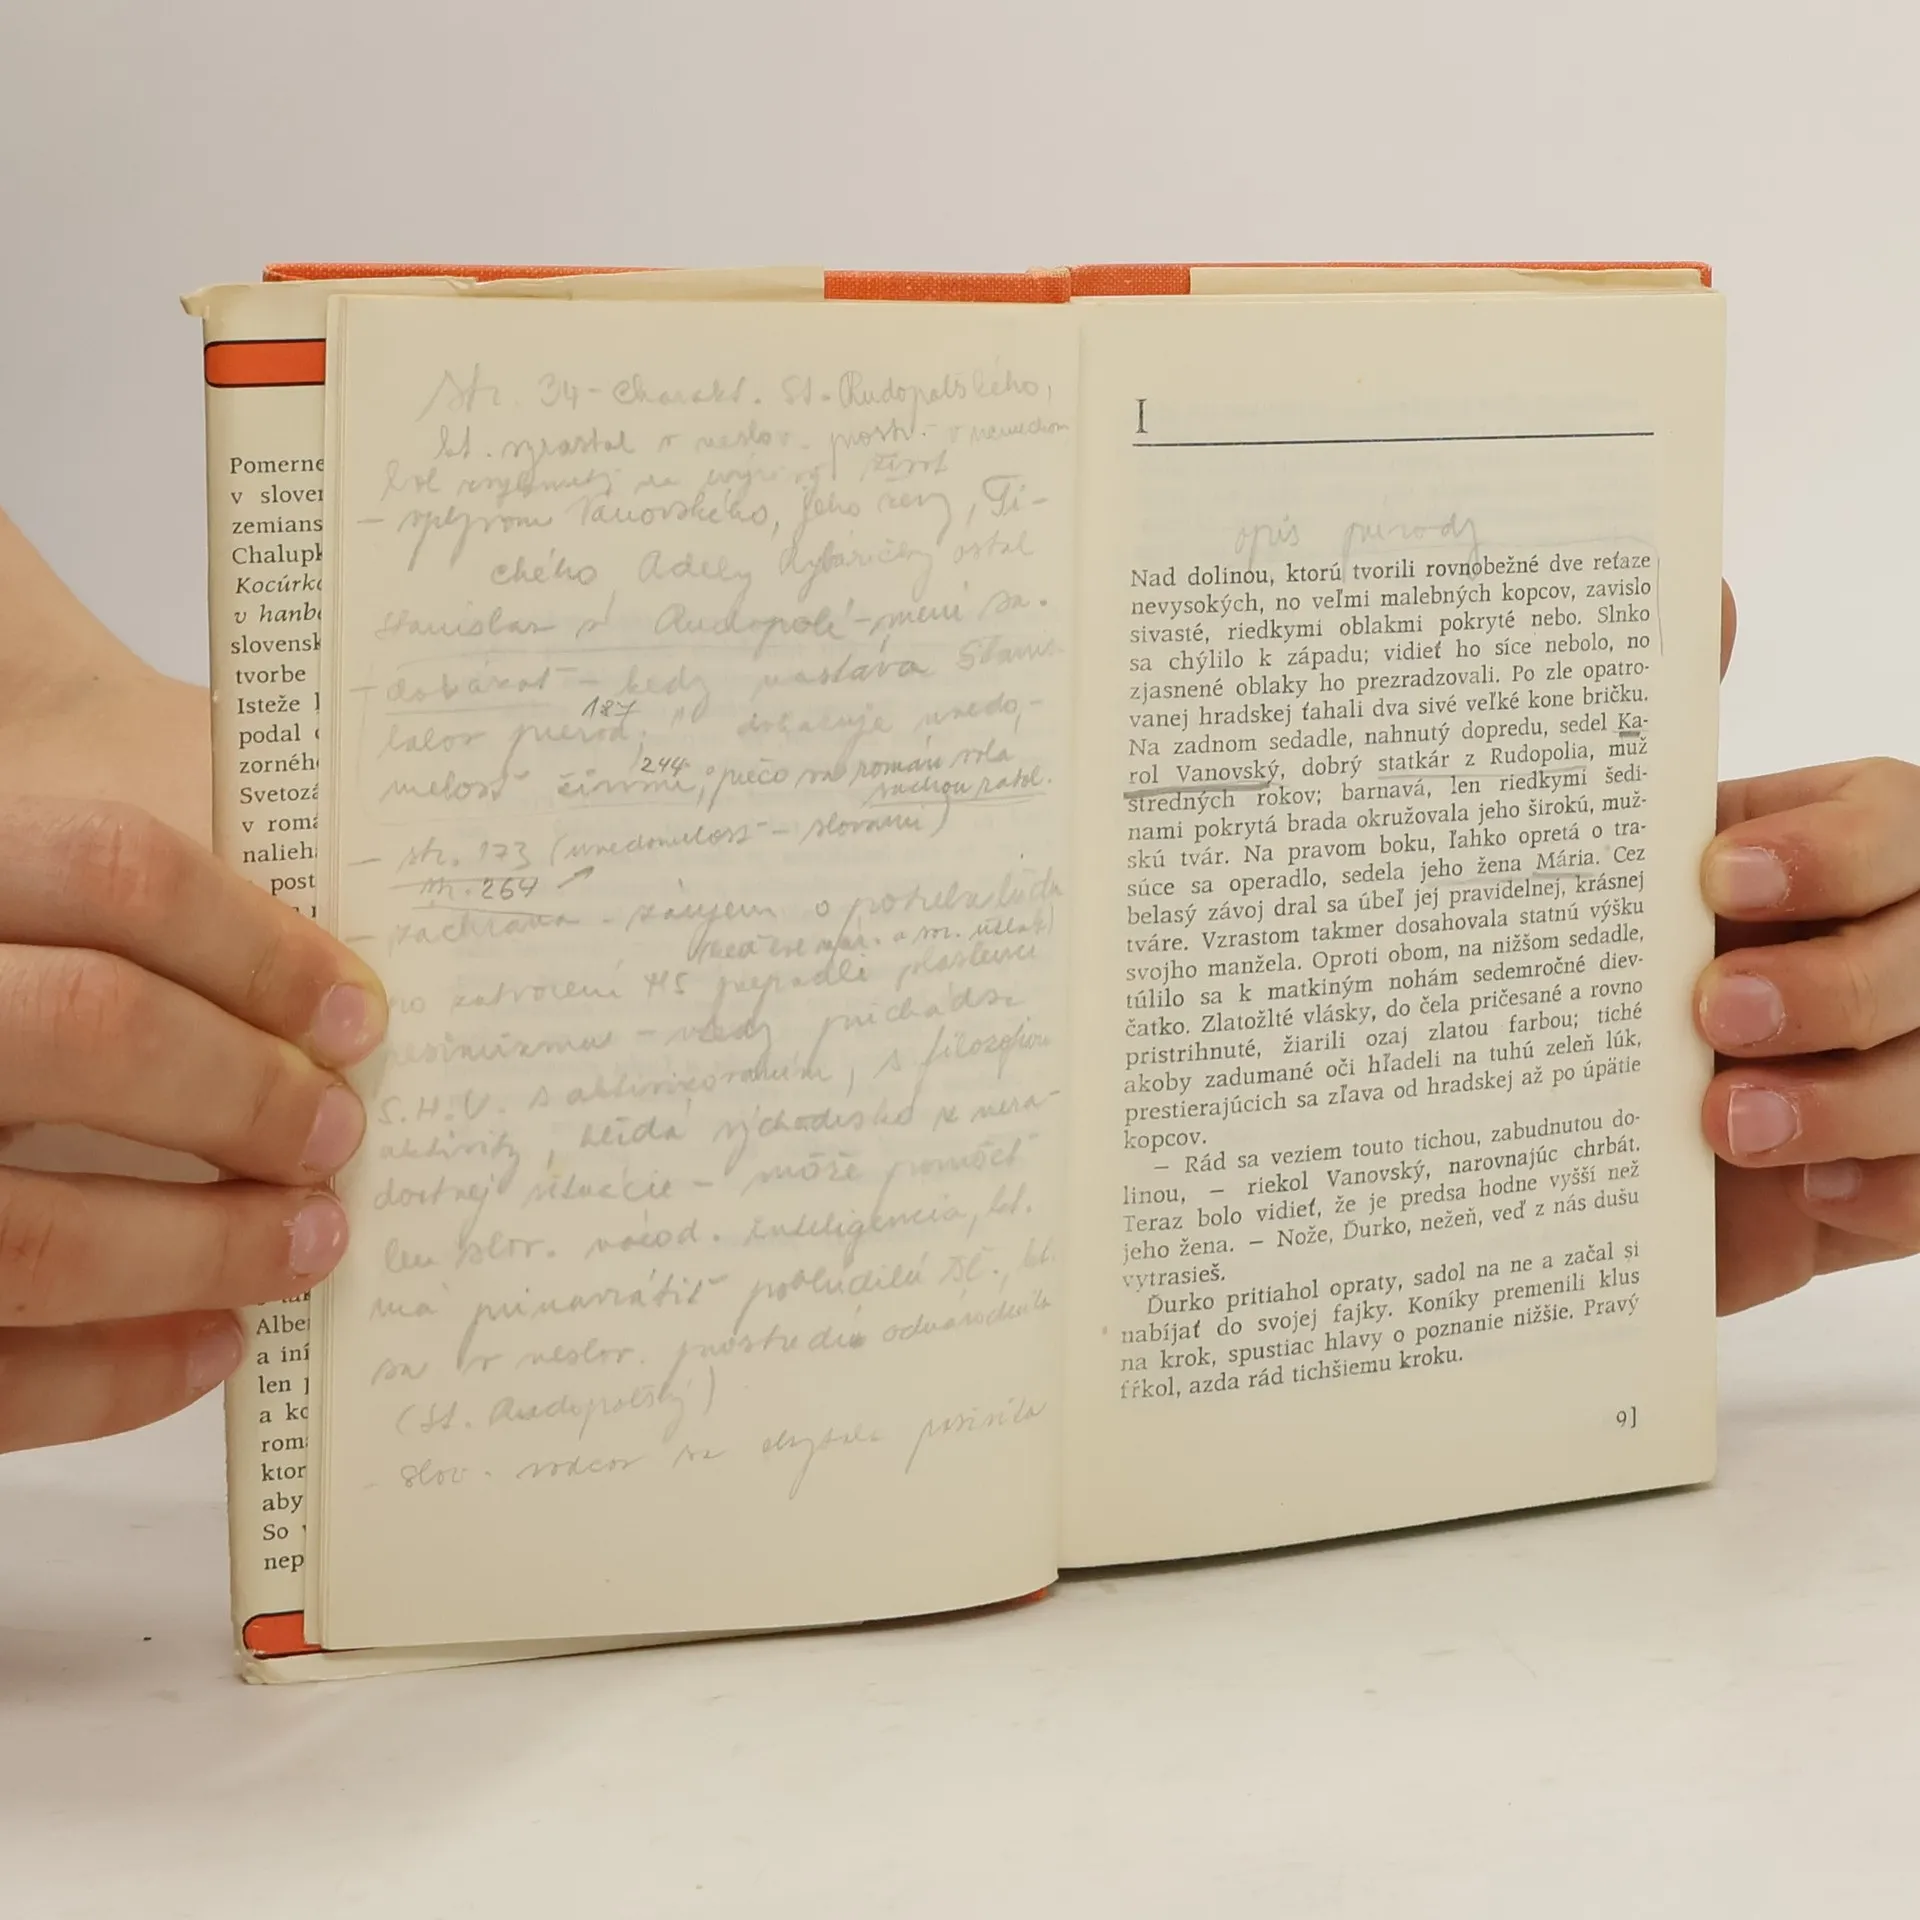 Pomerne
v sloven
zemians
Chalupk
Kocúrko
v hanbe
slovensk
tvorbe
Isteže
podal
zorného
Svetozá
v romá
nalieh
post
Albe
a iní
len
a ko
rom
ktor
aby
So
nep
str. 34 - charakt. St. Rudopolského,
kt. vzrastal v neslov. prostr. -
bol
- vplyvom Vanovského, jeho ženy, Ti-
chého Adely Rybáričky ostal
Stanislav v Rudopolí - mení sa.
dokázať - kedy nastáva Stanis-
lalov prerod, 187 dokazuje uvedo-
melosť činmi, 244 prečo sa román volá
suchou ratol.
- str. 173 (uvedomelosť - slovami)
str. 264
- záchrana - záujem o potreby ľudu
po zatvorení MS prepadli
pesimizmu - vtedy prichádza
S.H.V. s aktivizovaním, s filozofiou
aktivity, hľadá východisko z nera-
dostnej situácie - môže pomôcť
len slov. národ. inteligencia, kt.
má prinavrátiť poblúdilú kt.
sa v neslov. prostredí odnárodnila
(St. Rudopolský)
- slov. sa
I
opis prírody
Nad dolinou, ktorú tvorili rovnobežné dve reťaze
nevysokých, no veľmi malebných kopcov, zavislo
sivasté, riedkymi oblakmi pokryté nebo. Slnko
sa chýlilo k západu; vidieť ho síce nebolo, no
zjasnené oblaky ho prezradzovali. Po zle opatro-
vanej hradskej ťahali dva sivé veľké kone bričku.
Na zadnom sedadle, nahnutý dopredu, sedel Ka-
rol Vanovský, dobrý statkár z Rudopolia, muž
stredných rokov; barnavá, len riedkymi šedi-
nami pokrytá brada okružovala jeho širokú, muž-
skú tvár. Na pravom boku, ľahko opretá o tra-
súce sa operadlo, sedela jeho žena Mária. Cez
belasý závoj dral sa úbeľ jej pravidelnej, krásnej
tváre. Vzrastom takmer dosahovala statnú výšku
svojho manžela. Oproti obom, na nižšom sedadle,
túlilo sa k matkiným nohám sedemročné diev-
čatko. Zlatožlté vlásky, do čela pričesané a rovno
pristrihnuté, žiarili ozaj zlatou farbou; tiché
akoby zadumané oči hľadeli na tuhú zeleň lúk,
prestierajúcich sa zľava od hradskej až po úpätie
kopcov.
— Rád sa veziem touto tichou, zabudnutou do-
linou, — riekol Vanovský, narovnajúc chrbát.
Teraz bolo vidieť, že je predsa hodne vyšší než
jeho žena. — Nože, Ďurko, nežeň, veď z nás dušu
vytrasieš.
Ďurko pritiahol opraty, sadol na ne a začal si
nabíjať do svojej fajky. Koníky premenili klus
na krok, spustiac hlavy o poznanie nižšie. Pravý
fŕkol, azda rád tichšiemu kroku.
9]